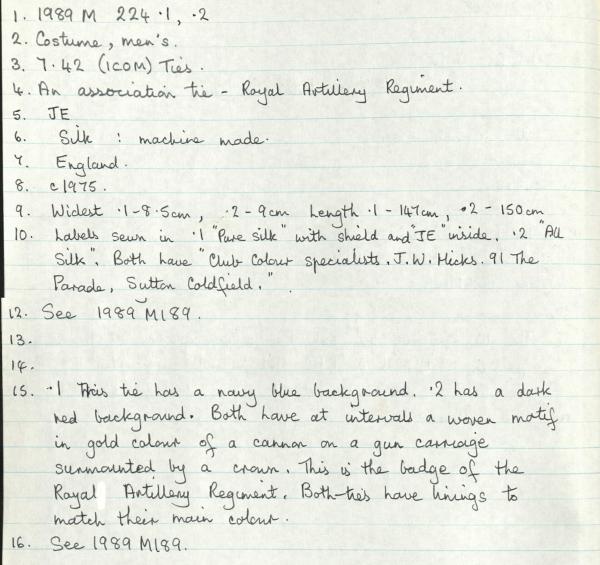 1. 1989 M 224 ·1, ·2
2. Costume, men's.
3. 7.42 (ICOM) Ties.
4. An association tie - Royal Artillery Regiment.
5. JE
6. Silk : machine made.
7. England.
8. c1975.
9. Widest ·1-8·5cm, ·2-9cm Length ·1-147cm, ·2-150cm
10. Labels sewn in ·1 "Pure silk" with shield and "JE" inside. ·2 "All
Silk". Both have "Club Colour specialists. J.W. Hicks. 91 The
Parade, Sutton Coldfield."
12. See 1989 M189.
13.
14.
15. ·1 This tie has a navy blue background. ·2 has a dark
red background. Both have at intervals a woven motif
in gold colour of a cannon on a gun carriage
surmounted by a crown. This is the badge of the
Royal Artillery Regiment. Both ties have linings to
match their main colour.
16. See 1989 M189.